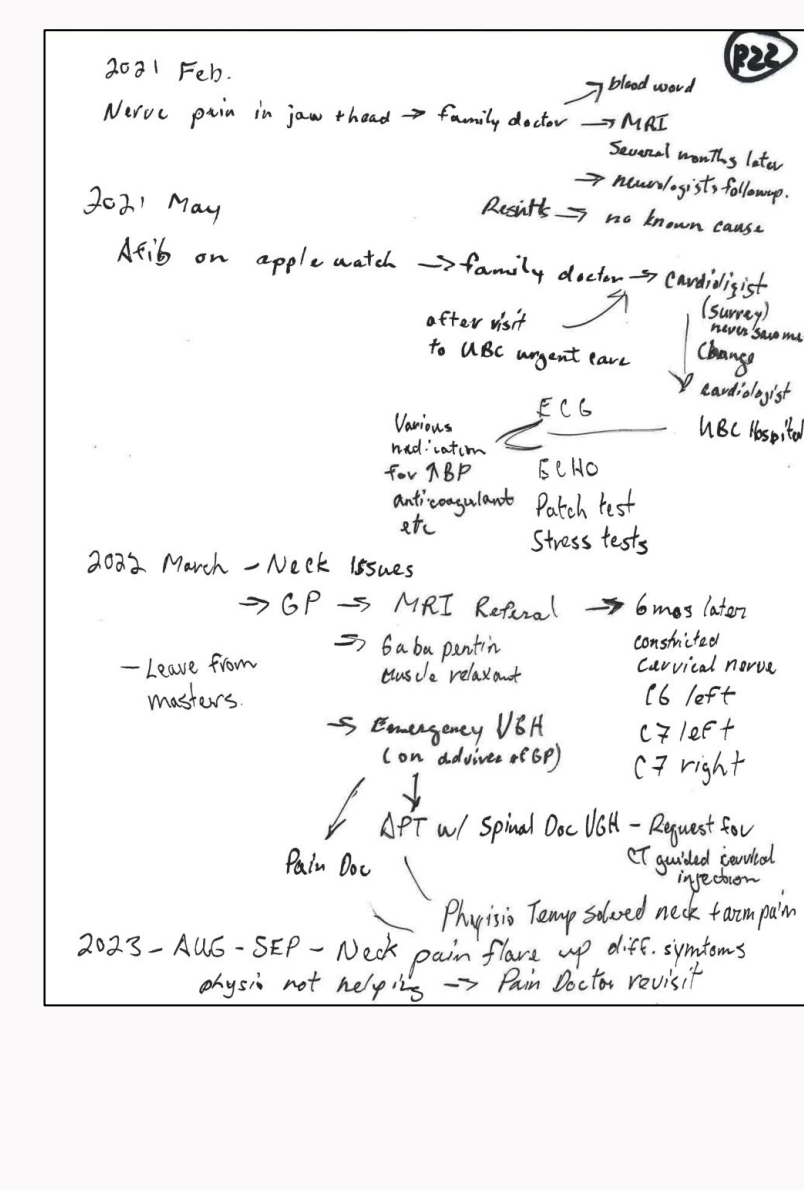 P22
2021 Feb.
Nerve pain in jaw + head → family doctor → blood word
→ MRI
Several months later
→ neurologists followup.
Results → no known cause
2021 May
Afib on apple watch → family doctor → cardioligist
(surrey)
never saw me
after visit
to UBC urgent care
Change
cardiologist
UBC Hospital
ECG
ECHO
Patch test
Stress tests
Various
for ↑BP
anticoagulant
etc
2022 March - Neck Issues
→ GP → MRI Referal → 6 mos later
constricted
Cervical nerve
C6 left
C7 left
C7 right
→ Gaba pentin
Muscle relaxant
- Leave from
masters.
→ Emergency VGH
(on advice of GP)
Pain Doc
APT w/ Spinal Doc VGH - Request for
CT guided cervical
injection
Physio Temp solved neck + arm pain
2023 - AUG - SEP - Neck pain flare up diff. symtoms
physio not helping → Pain Doctor revisit